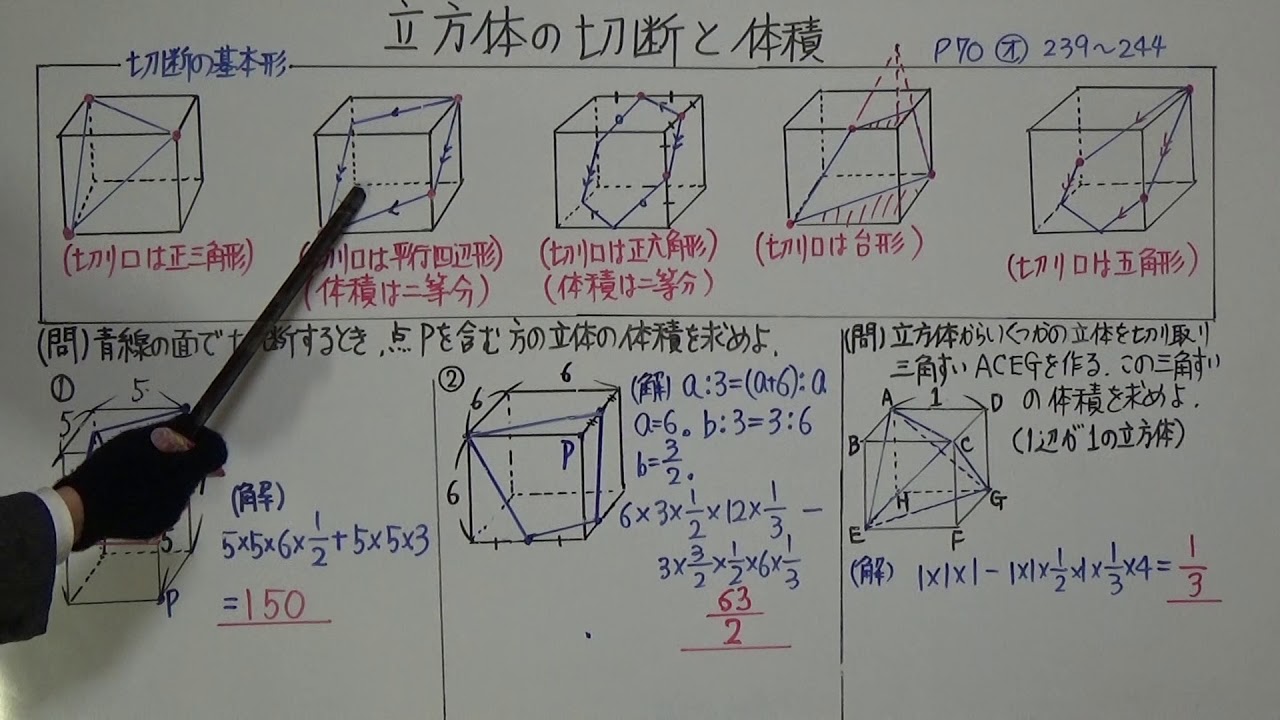 立方体の切断と体積
P70 オ 239〜244
切断の基本形
(切り口は正三角形)
切り口は平行四辺形)
(体積は二等分)
(切り口は正六角形)
(体積は二等分)
(切り口は台形)
(切り口は五角形)
(問) 青線の面で切断するとき,点Pを含む方の立体の体積を求めよ.
①
5
5
5
P
(解)
5×5×6×1/2+5×5×3
=150
②
6
6
6
P
(解) a:3=(a+6):a
a=6。b:3=3:6
b=3/2。
6×3×1/2×12×1/3 −
3×3/2×1/2×6×1/3
63/2
(問) 立方体からいくつかの立体を切り取り
三角すいACEGを作る.この三角すい
の体積を求めよ.
(1辺が1の立方体)
A 1 D
B C
H G
E F
(解) 1×1×1−1×1×1/2×1×1/3×4=1/3